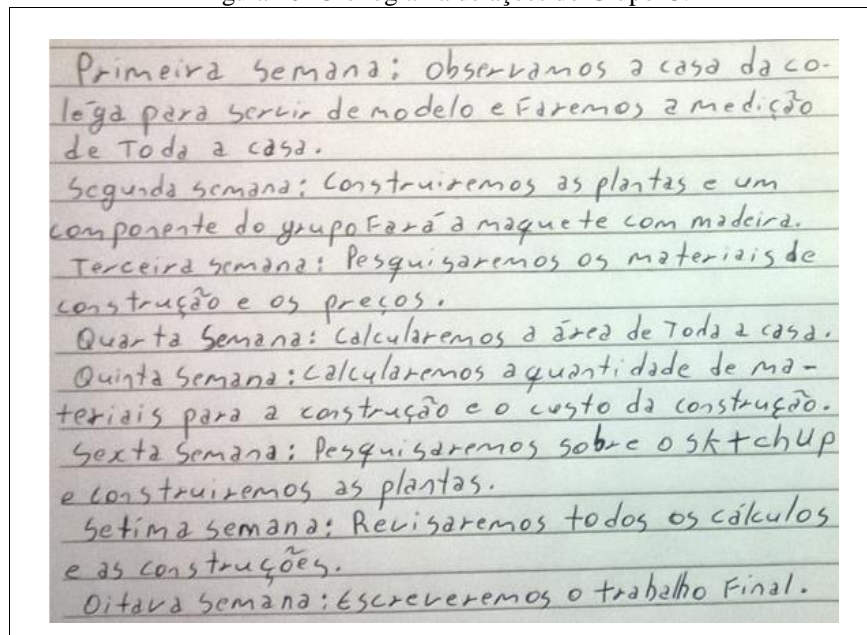 Primeira semana: observamos a casa da co-
léga para servir de modelo e Faremos a medição
de Toda a casa.
Segunda semana: Construiremos as plantas e um
componente do grupo Fará a maquete com madeira.
Terceira semana: Pesquisaremos os materiais de
construção e os preços.
Quarta Semana: Calcularemos a área de Toda a casa.
Quinta Semana: Calcularemos a quantidade de ma-
teriais para a construção e o custo da construção.
Sexta Semana: Pesquisaremos sobre o sktchUp
e construiremos as plantas.
Setima semana: Revisaremos todos os cálculos
e as construções.
Oitava Semana: Escreveremos o trabalho Final.